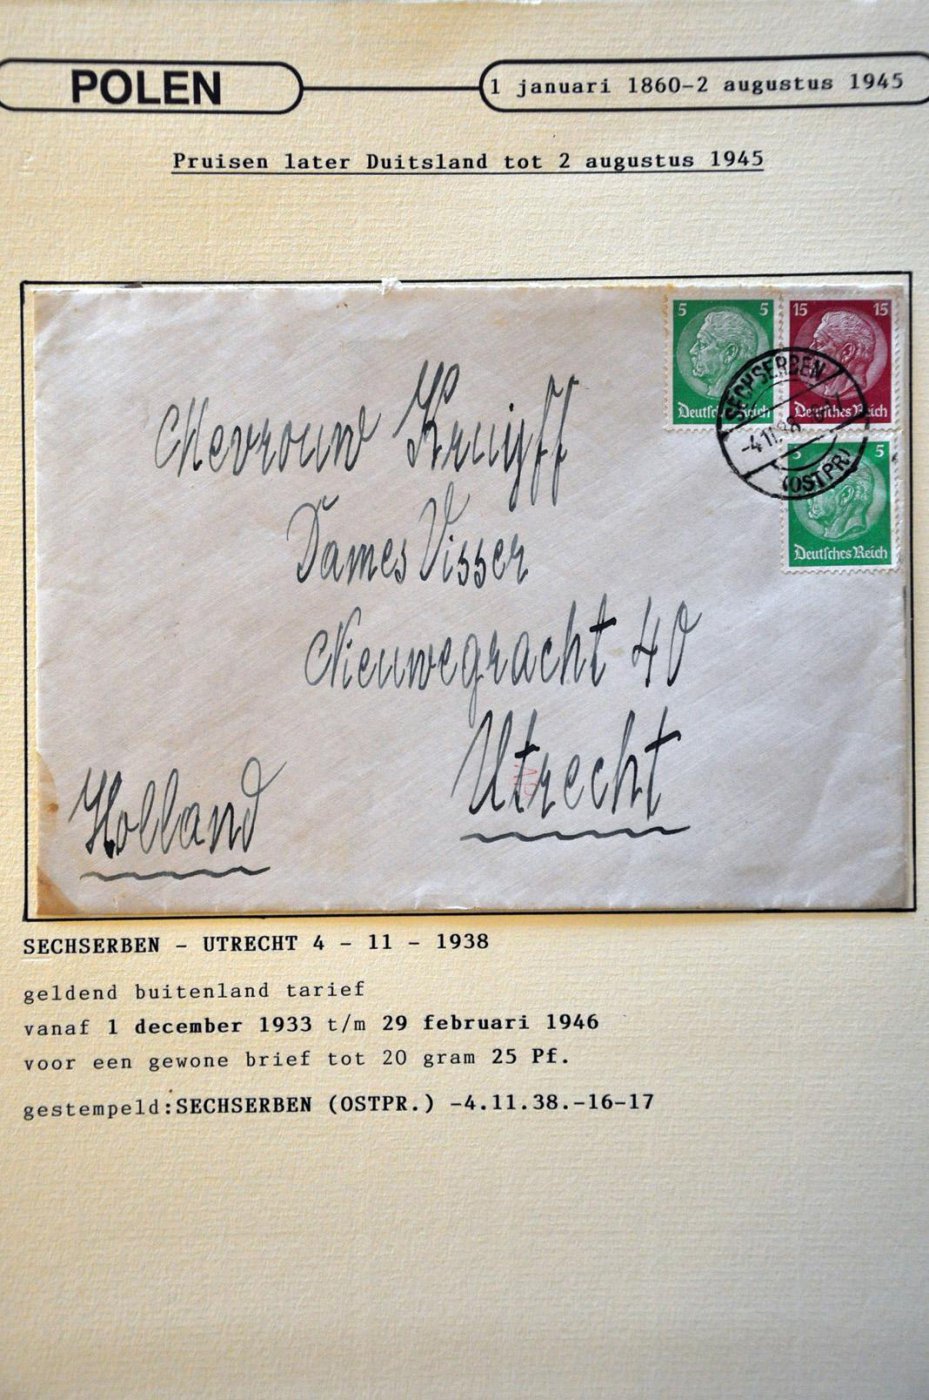 POLEN
1 januari 1860-2 augustus 1945
Pruisen later Duitsland tot 2 augustus 1945
5 5
Deutsches Reich
15 15
Deutsches Reich
SECHSERBEN
-4.11.38
(OSTPR)
5 5
Deutsches Reich
Mevrouw Kruijff
Dames Visser
Nieuwegracht 40
Utrecht
Holland
SECHSERBEN - UTRECHT 4 - 11 - 1938
geldend buitenland tarief
vanaf 1 december 1933 t/m 29 februari 1946
voor een gewone brief tot 20 gram 25 Pf.
gestempeld:SECHSERBEN (OSTPR.) -4.11.38.-16-17